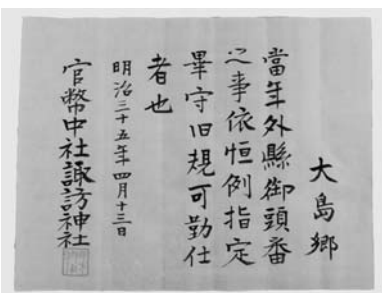 大島郷
當年外縣御頭番
之事依恒例指定
畢守旧規可勤仕
者也
明治三十五年四月十三日
官幣中社諏訪神社